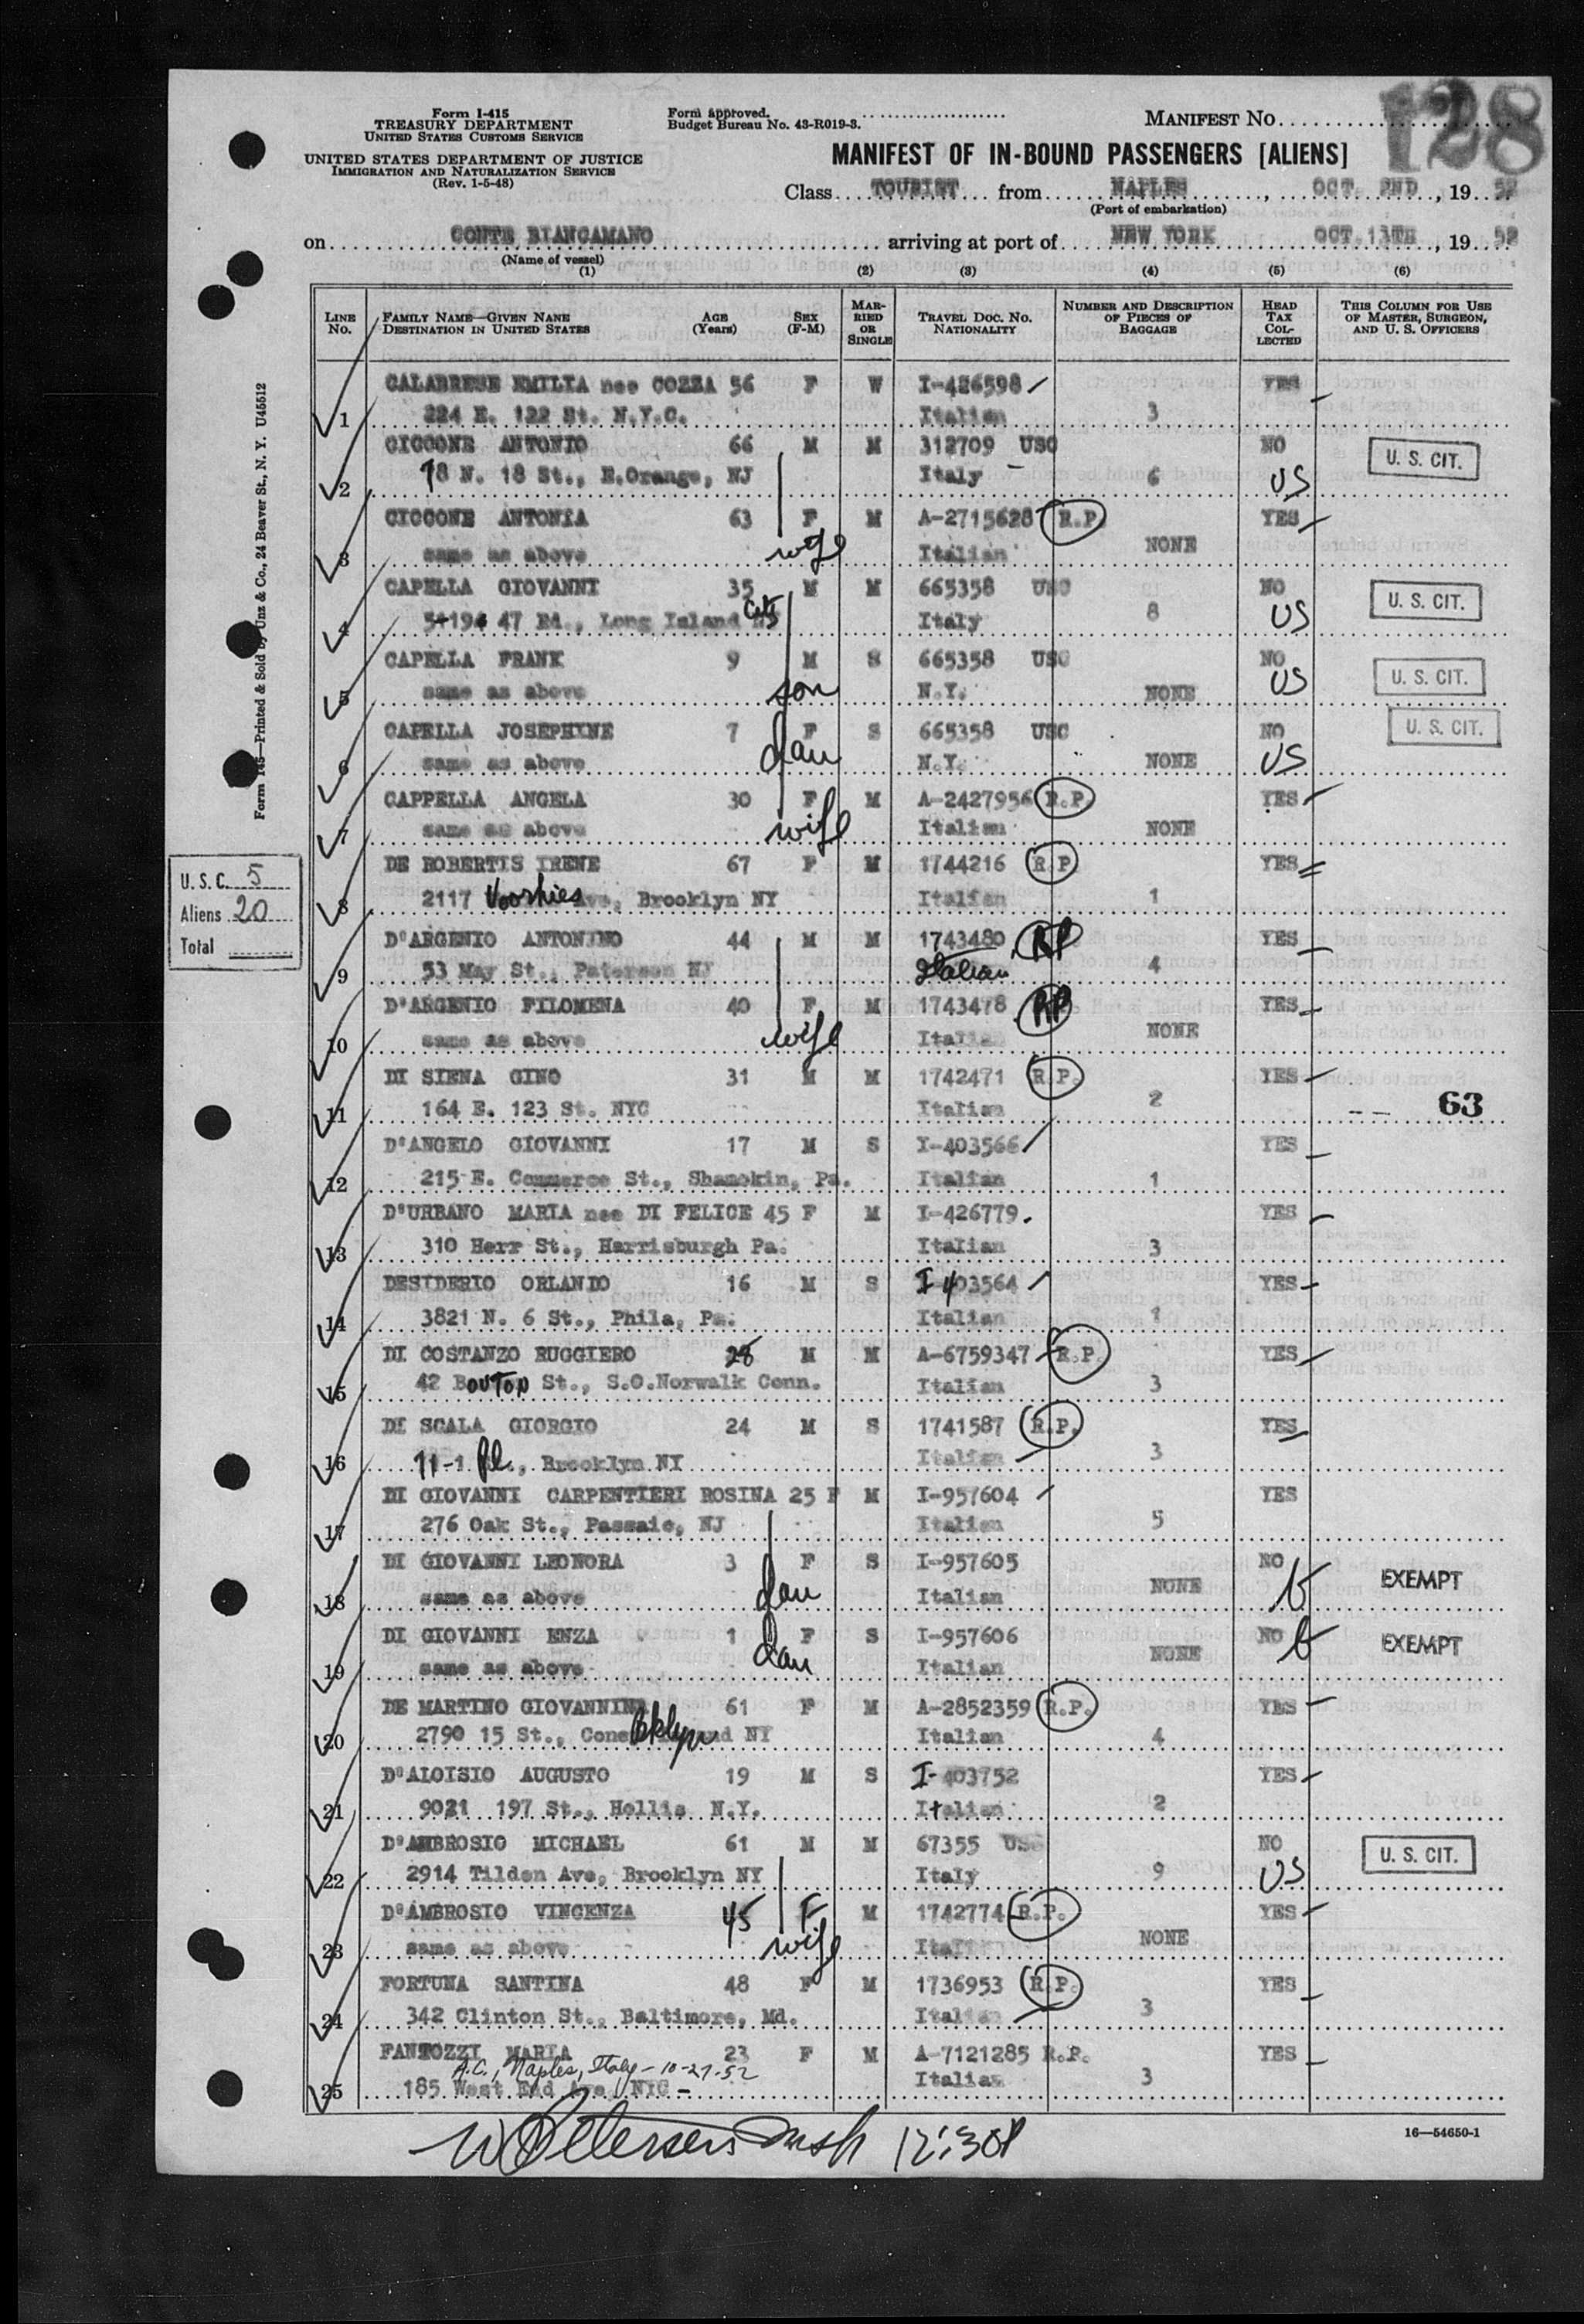 128
Form I-415
TREASURY DEPARTMENT
UNITED STATES CUSTOMS SERVICE
UNITED STATES DEPARTMENT OF JUSTICE
IMMIGRATION AND NATURALIZATION SERVICE
(Rev. 1-5-48)
Form approved.
Budget Bureau No. 43-R019-3.
MANIFEST NO.
MANIFEST OF IN-BOUND PASSENGERS [ALIENS]
Class TOURIST from NAPLES, OCT. 2ND, 1952
(Port of embarkation)
on CONTE BIANCAMANO arriving at port of NEW YORK OCT.13TH, 1952
(Name of vessel)
(1) (2) (3) (4) (5) (6)
LINE NO. FAMILY NAME—GIVEN NANE DESTINATION IN UNITED STATES AGE (Years) SEX (F-M) MARRIED OR SINGLE TRAVEL DOC. NO. NATIONALITY NUMBER AND DESCRIPTION OF PIECES OF BAGGAGE HEAD TAX COLLECTED THIS COLUMN FOR USE OF MASTER, SURGEON, AND U. S. OFFICERS
CALABRESE EMILIA nee COZZA 56 F W I-426598 YES
1 224 E. 122 St. N.Y.C. Italian 3
CICCONE ANTONIO 66 M M 312709 USC NO U. S. CIT.
2 78 N. 18 St., E.Orange, NJ Italy 6 US
CICCONE ANTONIA 63 F M A-2715628 R.P. YES
3 same as above wife Italian NONE
CAPELLA GIOVANNI 35 M M 665358 USC NO U. S. CIT.
4 47 Rd., Long Island City Italy 8 US
CAPELLA FRANK 9 M S 665358 USC NO U. S. CIT.
5 same as above son N.Y. NONE US
CAPELLA JOSEPHINE 7 F S 665358 USC NO U. S. CIT.
6 same as above dau N.Y. NONE US
CAPPELLA ANGELA 30 F M A-2427956 R.P. YES
7 same as above wife Italian NONE
DE ROBERTIS IRENE 67 F M 1744216 R.P. YES
8 2117 Voorhies Ave, Brooklyn NY Italian 1
D'ARGENIO ANTONINO 44 M M 1743480 RP YES
9 53 May St., Paterson NJ Italian 4
D'ARGENIO FILOMENA 40 F M 1743478 RP YES
10 same as above wife Italian NONE
DI SIENA GINO 31 M M 1742471 R.P. YES
11 164 E. 123 St. NYC Italian 2 63
D'ANGELO GIOVANNI 17 M S I-403566 YES
12 215 E. Commerce St., Shamokin, Pa. Italian 1
D'URBANO MARIA nee DI FELICE 45 F M I-426779. YES
13 310 Herr St., Harrisburgh Pa. Italian 3
DESIDERIO ORLANDO 16 M S I-403564 YES
14 3821 N. 6 St., Phila, Pa. Italian 1
DI COSTANZO RUGGIERO 28 M M A-6759347 R.P. YES
15 42 BOUTON St., S.O.Norwalk Conn. Italian 3
DI SCALA GIORGIO 24 M S 1741587 R.P. YES
16 11-1 Pl., Brooklyn NY Italian 3
DI GIOVANNI CARPENTIERI ROSINA 25 F M I-957604 YES
17 276 Oak St., Passaic, NJ Italian 5
DI GIOVANNI LEONORA 3 F S I-957605 NO EXEMPT
18 same as above dau Italian NONE
DI GIOVANNI ENZA 1 F S I-957606 NO EXEMPT
19 same as above dau Italian NONE
DE MARTINO GIOVANNINA 61 F M A-2852359 R.P. YES
20 2790 15 St., Bklyn NY Italian 4
D'ALOISIO AUGUSTO 19 M S I-403752 YES
21 9021 197 St., Hollis N.Y. Italian 2
D'AMBROSIO MICHAEL 61 M M 67355 USC NO U. S. CIT.
22 2914 Tilden Ave, Brooklyn NY Italy 9 US
D'AMBROSIO VINCENZA 45 F M 1742774 R.P. YES
23 same as above wife Italian NONE
FORTUNA SANTINA 48 F M 1736953 R.P. YES
24 342 Clinton St., Baltimore, Md. Italian 3
FANTOZZI MARIA 23 F M A-7121285 R.P. YES
A.C., Naples, Italy - 10-27-52
25 185 West End Ave. NYC Italian 3
12:30P
16—54650-1
Form 145—Printed & Sold by Unz & Co., 24 Beaver St., N. Y. U45512
U. S. C. 5
Aliens 20
Total